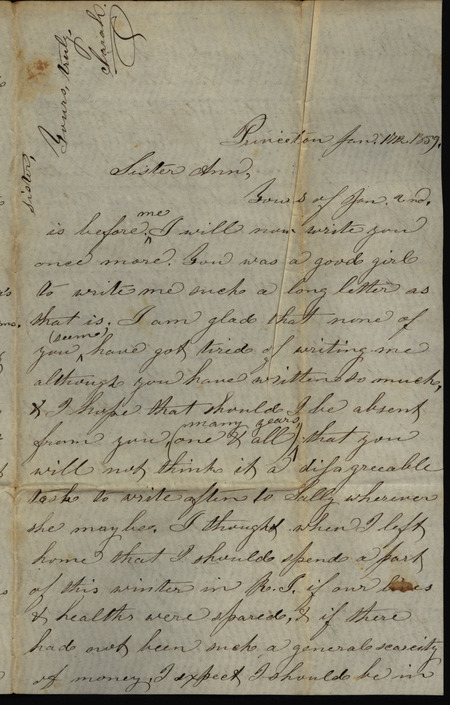 Princeton Jan. 1859.
Sister Ann,
Yours of Jan. 2nd.
is before me. I will now write you
once more. You was a good girl
to write me such a long letter as
that is. I am glad that none of
you (seems) have got tired of writing me
although you have written so much,
& I hope that should I be absent
from you (one & all) many years, that you
will not think it a disagreeable
task to write often to Sally wherever
she maybe. I thought when I left
home that I should spend a part
of this winter in R.I. if our lives
& healths were spared, & if there
had not been such a general scarcity
of money, I expect I should be in
sister,
Yours, truly,
Sarah.